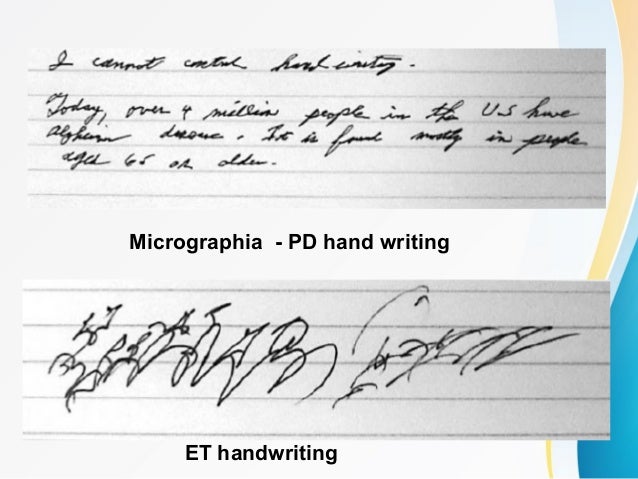 I cannot control handwriting.
Today, over 4 million people in the U.S have
disease. It is found mostly in people
aged 65 or older.
Micrographia - PD hand writing
ET handwriting